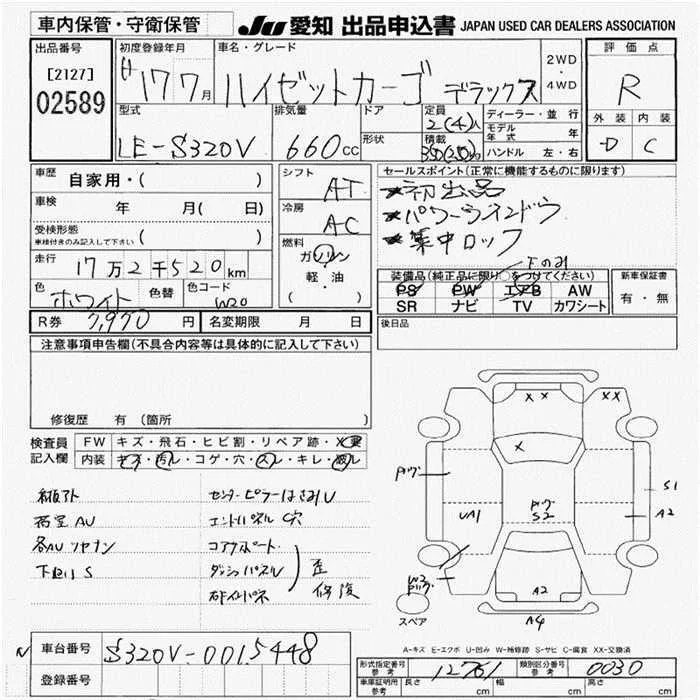 車内保管・守衛保管
JU 愛知 出品申込書 JAPAN USED CAR DEALERS ASSOCIATION
出品番号
[2127]
02589
初度登録年月
17 7月
車名・グレード
ハイゼットカーゴ デラックス
2WD
・
4WD
評価点
R
外装 内装
D C
型式
LE-S320V
排気量
660cc
ドア
形状
定員
2(4)人
積載
350(250)kg
ディーラー・並行
モデル年式 年
ハンドル 左・右
車歴
自家用・( )
車検
年 月( 日)
受検形態
車検付きのみ記入して下さい
( )
走行
17万2千520km
色
ホワイト
色替
色コード
W20
シフト
AT
冷房
AC
燃料
ガソリン
軽・油
( )
セールスポイント(正常に機能するものに限ります)
★初出品
★パワーウインドウ
★集中ロック
下のみ
装備品(純正品に限り○をつけてください)
PS PW エアB AW
SR ナビ TV カワシート
新車保証書
有・無
R券 7,970円
名変期限 月 日
後日品
注意事項申告欄(不具合内容等は具体的に記入して下さい)
修復歴 有 (箇所 )
検査員
記入欄
FW キズ・飛石・ヒビ割・リペア跡・
内装 キズ・汚レ・コゲ・穴・スレ・キレ・
各AU
下回り S
センターピラーはさみ
エンドパネル 穴
コアサポート
ダッシュパネル
歪
修復
X X
X
UA1
S2
A2
A4
S1
A2
W3
スペア
A-キズ E-エクボ U-凹み W-補修跡 S-サビ C-腐食 XX-交換済
車台番号 S320V-0015448
登録番号
形式指定番号
参考
12761
類別区分番号
参考
0030
車庫証明用
参考
長さ cm 幅 cm 高さ cm